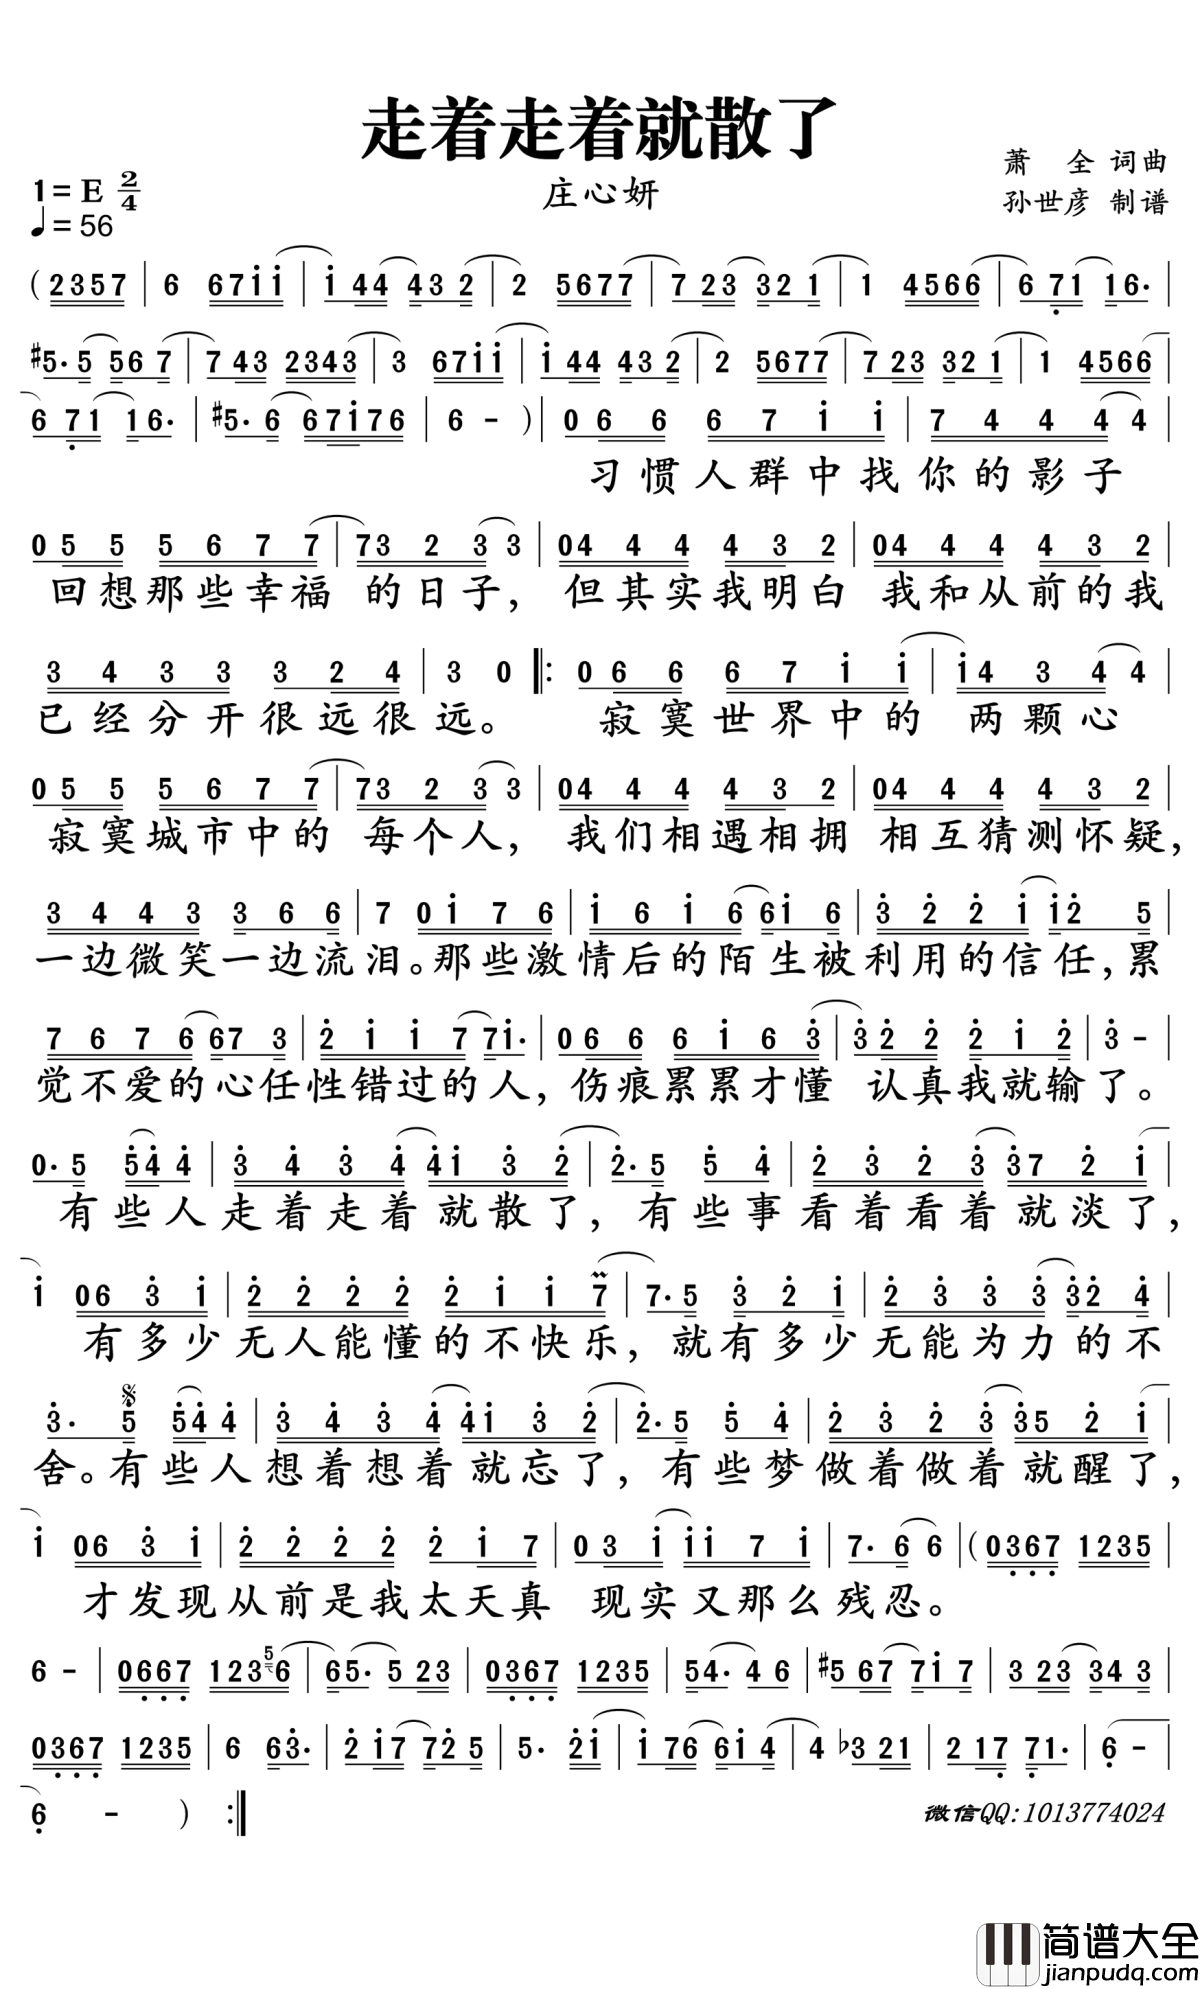 走着走着就散了
萧 全 词曲
1=E 2/4
庄心妍
孙世彦 制谱
♩=56
(2357|6 67ii|i44 432|2 5677|723 321|1 4566|671 16.|
#5.5 567|743 2343|3 67ii|i44 432|2 5677|723 321|1 4566|
671 16.|#5.6 67i76|6 -)|066 67ii|7444 4|
习惯人群中找你的影子
055 5677|7323 3|04 44 432|04 44 432|
回想那些幸福 的日子，但其实我明白 我和从前的我
3433 324|3 0‖:066 67ii|i434 4|
已经分开很远很远。 寂寞世界中的 两颗心
055 5677|7323 3|04 44 432|04 44 432|
寂寞城市中的 每个人，我们相遇相拥 相互猜测怀疑，
3443 366|7 0i76|i6i6 6i6|322i i25|
一边微笑一边流泪。那些激情后的陌生被利用的信任，累
7676 673|2ii7 7i.|066 6i63|322 2i2|3-|
觉不爱的心任性错过的人，伤痕累累才懂 认真我就输了。
0.5 544|3434 4i32|2.5 54|2323 372i|
有些人走着走着就散了，有些事看着看着就淡了，
i 063i|2222 2ii7|7.5 32i|2333 324|
有多少无人能懂的不快乐，就有多少无能为力的不
3.5 544|3434 4i32|2.5 54|2323 352i|
舍。有些人想着想着就忘了，有些梦做着做着就醒了，
i 063i|2222 2i7|03i ii7i|7.6 6|(0367 1235|
才发现从前是我太天真 现实又那么残忍。
6-|0667 12356|65. 523|0367 1235|54. 46|#567 7i7|323 343|
0367 1235|6 63.|2i7 725|5. 2i|i76 6i4|4 b321|217 71.|6-|
6 - ) :‖
微信QQ:1013774024
简谱大全
jianpudq.com